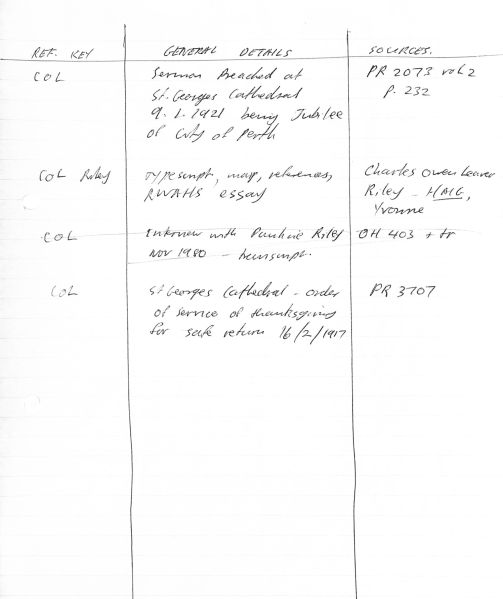 REF. KEY GENERAL DETAILS SOURCES.
COL Sermon Preached at PR 2073 vol 2
St. Georges Cathedral P. 232
9.1.1921 being Jubilee
of City of Perth
COL Riley Typescript, map, references, Charles Owen Leaver
RWAHS essay Riley - HAIG,
Yvonne
COL Interview with Pauline Riley OH 403 + tr
Nov 1980 - transcript.
COL St Georges Cathedral - order PR 3707
of service of thanksgiving
for safe return 16/2/1917